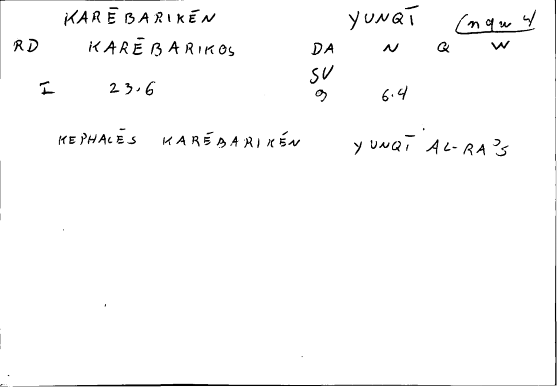 KARĒBARIKĒN YUNQĪ (nqw 4)
RD KARĒBARIKOS DA N Q W
SV
I 23.6 9 6.4
KEPHALĒS KARĒBARIKĒN YUNQĪ AL-RAʾS